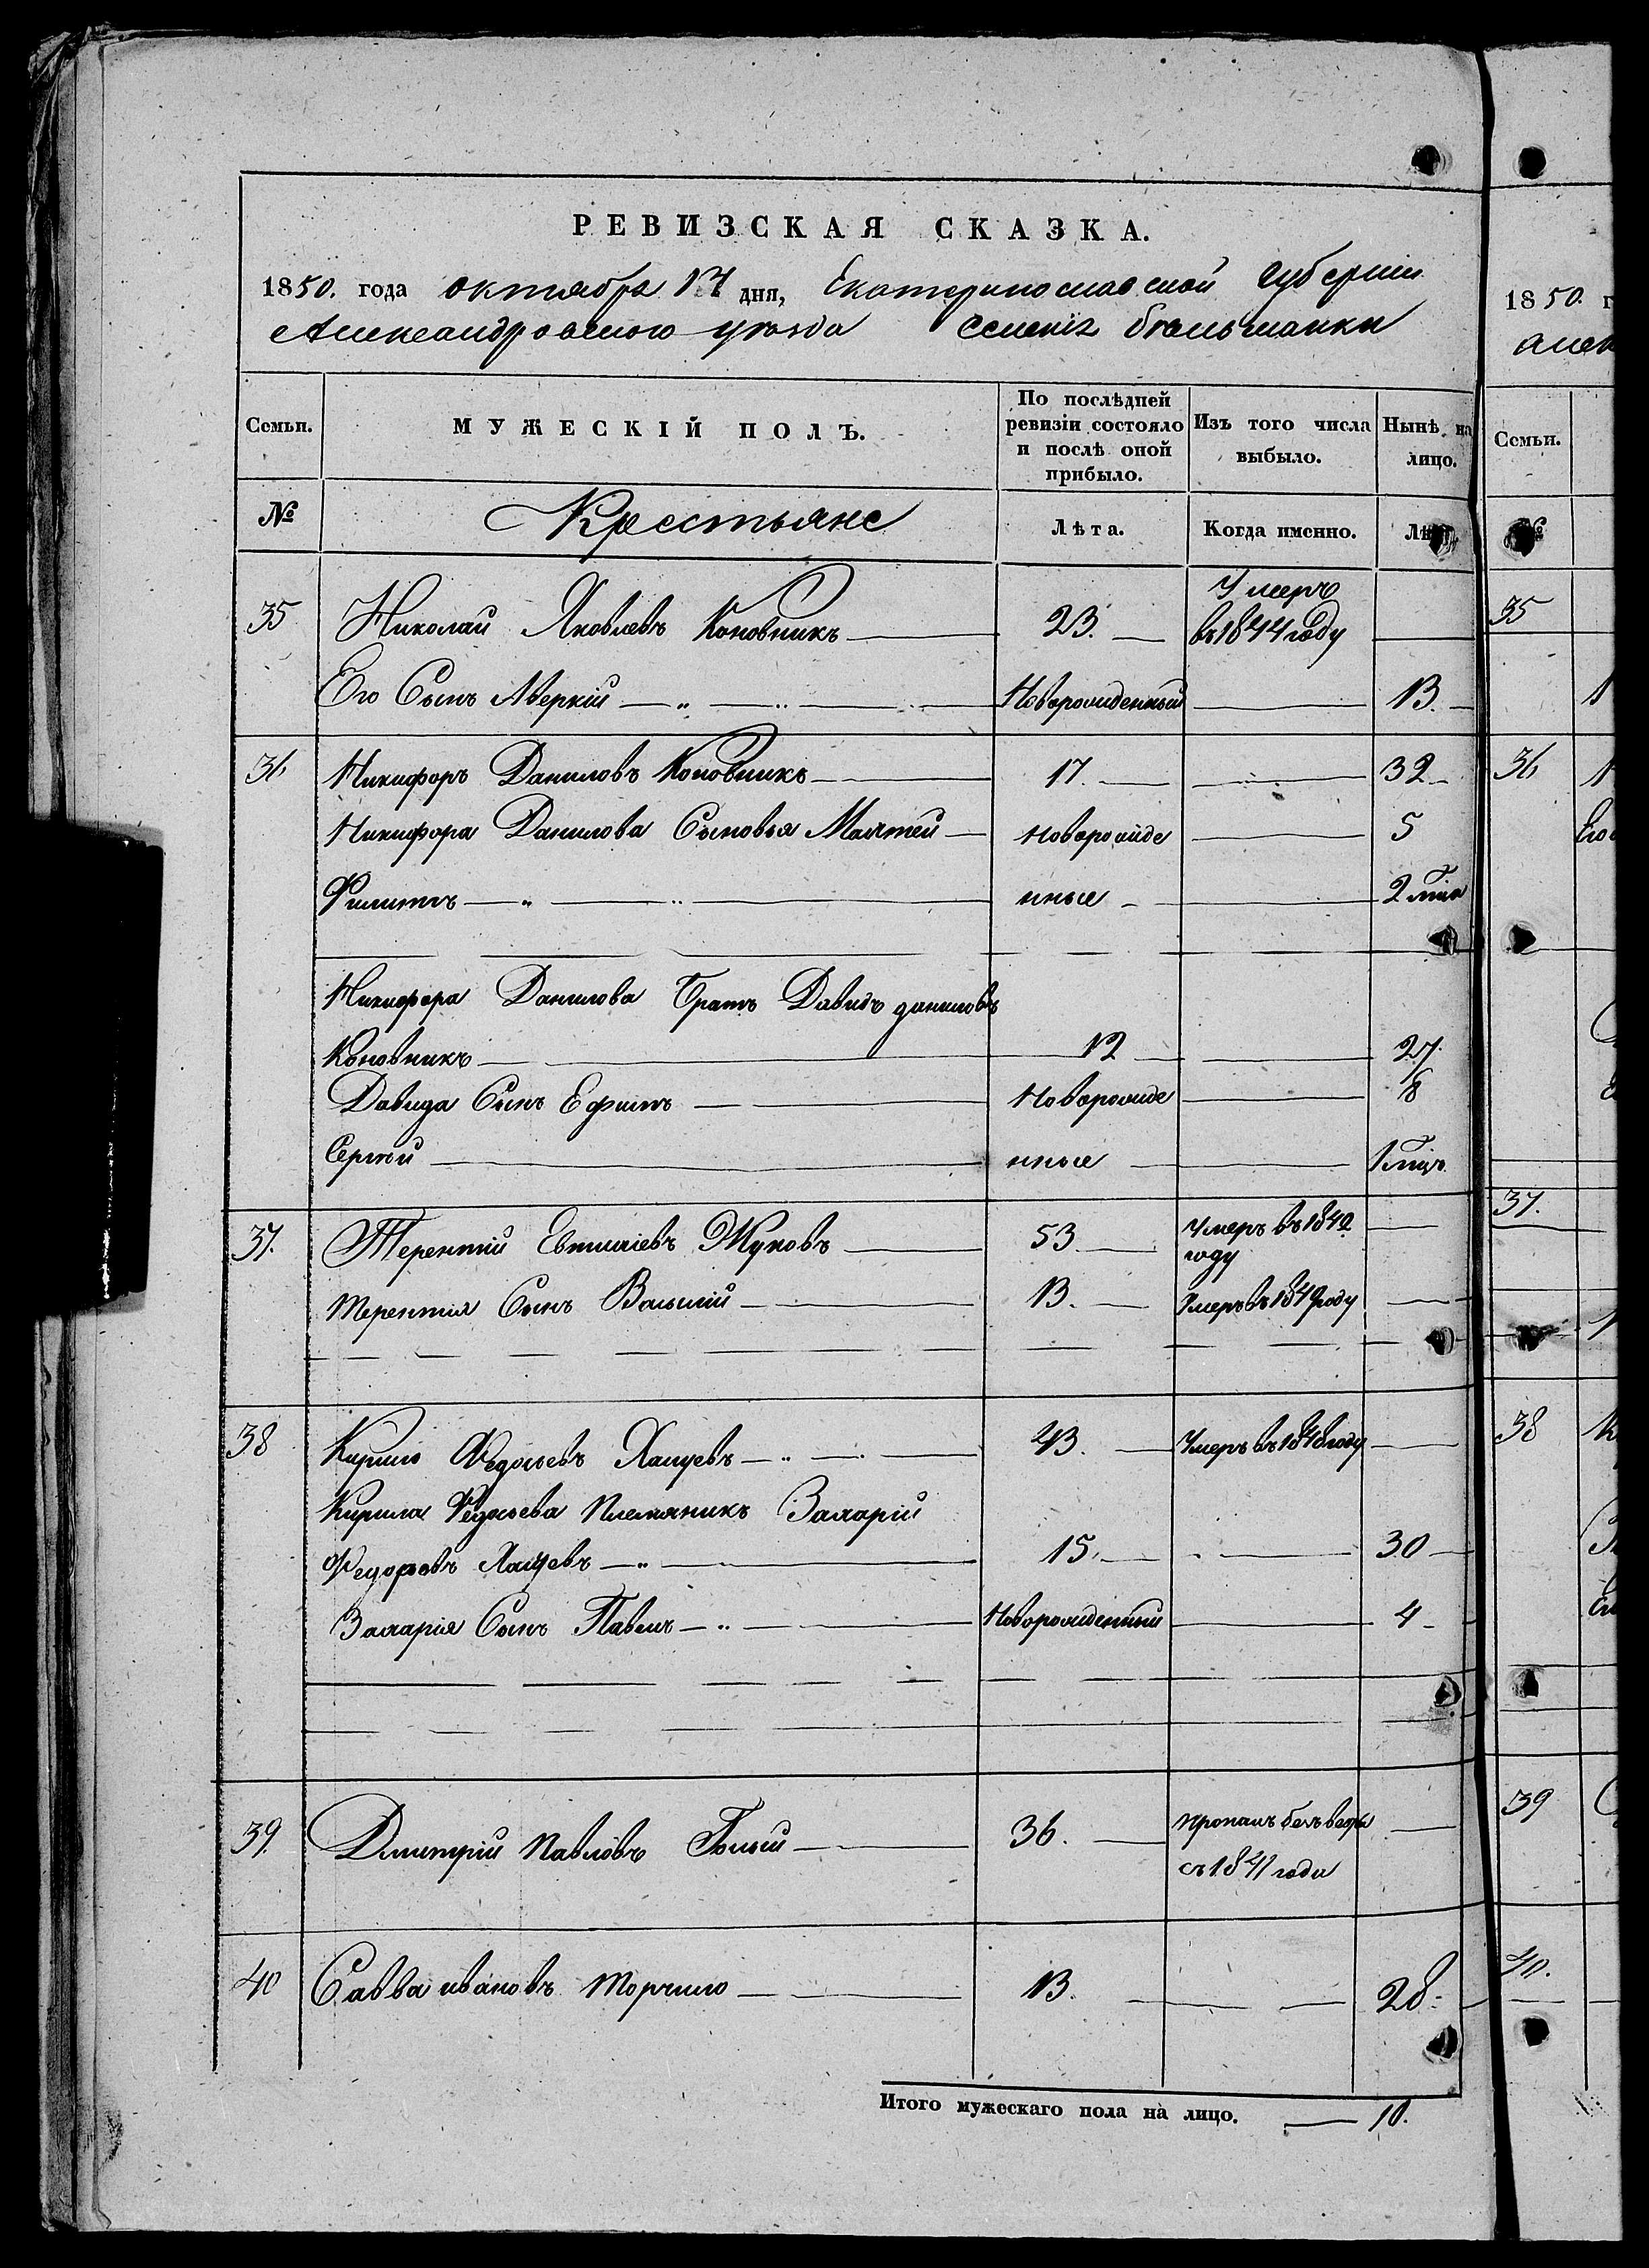 РЕВИЗСКАЯ СКАЗКА.
1850. года октября 17 дня, Екатеринославской губерніи
Александровского уѣзда селенія Бѣльманки
Семьи.
МУЖЕСКІЙ ПОЛЪ.
По послѣдней ревизіи состояло и послѣ оной прибыло.
Изъ того числа выбыло.
Нынѣ на лицо.
№
Крестьяне
Лѣта.
Когда именно.
35 Николай Яковлевъ Коновникъ 23. Умеръ въ 1844 году
Его Сынъ Аверкій Новорожденный 13.
36 Никифоръ Даниловъ Коновникъ 17. 32
Никифора Данилова Сыновья Матвей новорожде 5
Филипъ нные 2
Никифора Данилова Братъ Давидъ даниловъ
Коновникъ 12 27.
Давида Сынъ Ефимъ Новорожде 8
Сергѣй нные
37. Терентій Евтихіевъ Жуковъ 53 Умеръ въ 1842 году
Терентія Сынъ Василій 13. Умеръ въ 1849 году
38 Кирило Федосѣевъ Хащевъ 43. Умеръ въ 1848 году
Кирила Федосѣева Племяникъ Захарій
Федоровъ Хащевъ 15. 30
Захарія Сынъ Павелъ Новорожденный 4
39. Дмитрій Павловъ Голый 36. пропалъ безъ вести
съ 1841 года
40 Савва ивановъ Торчило 13. 28.
Итого мужескаго пола на лицо. 10.
1850. г
алек
Семьи.
№
35
36
37.
38
39
40.